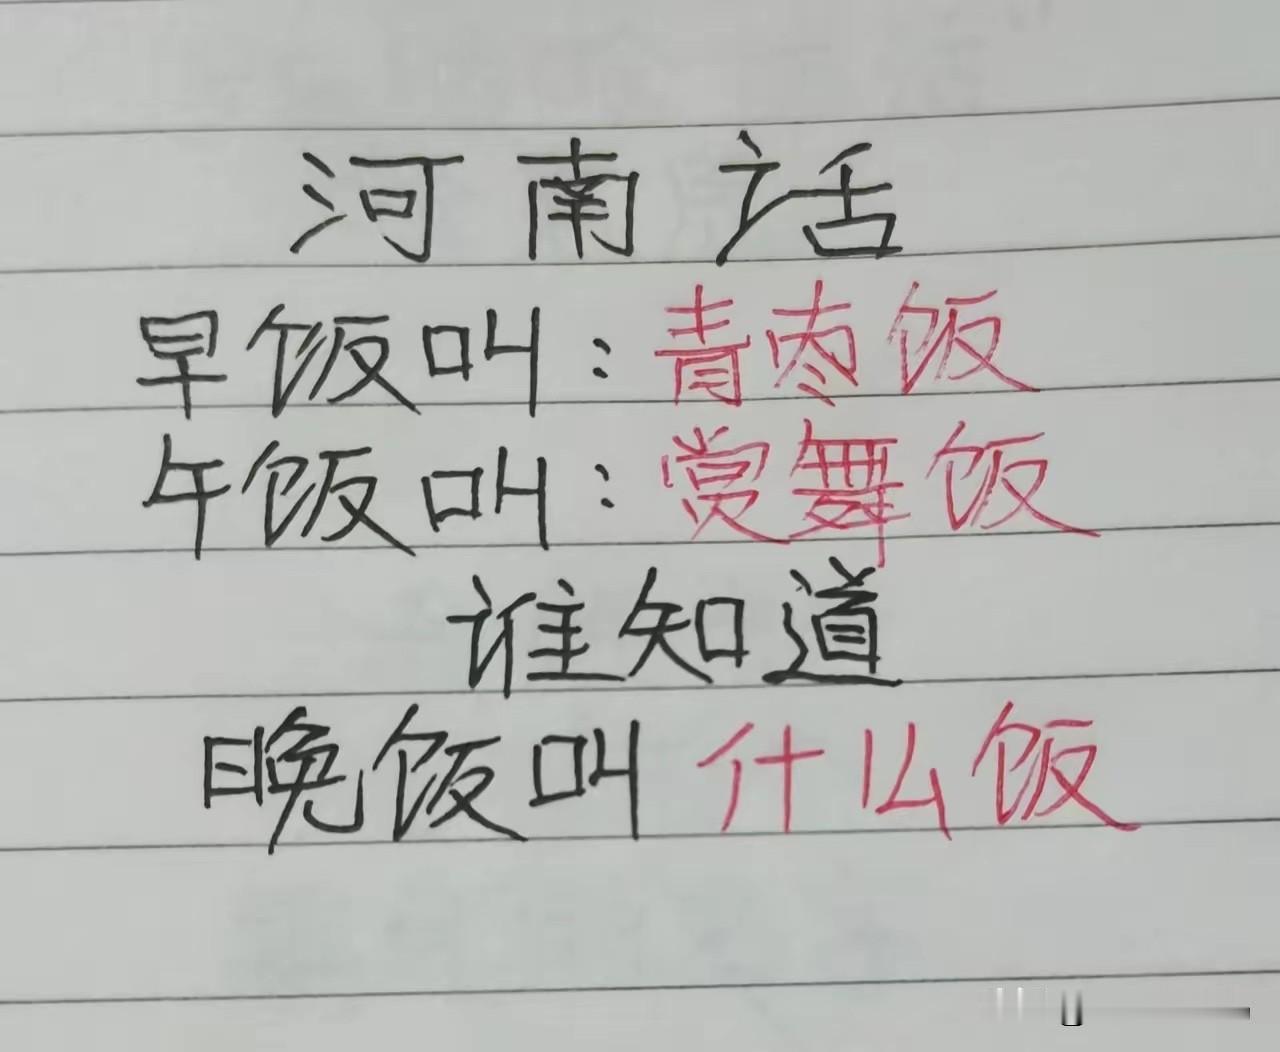 河南话
早饭叫：青枣饭
午饭叫：赏舞饭
谁知道
晚饭叫什么饭